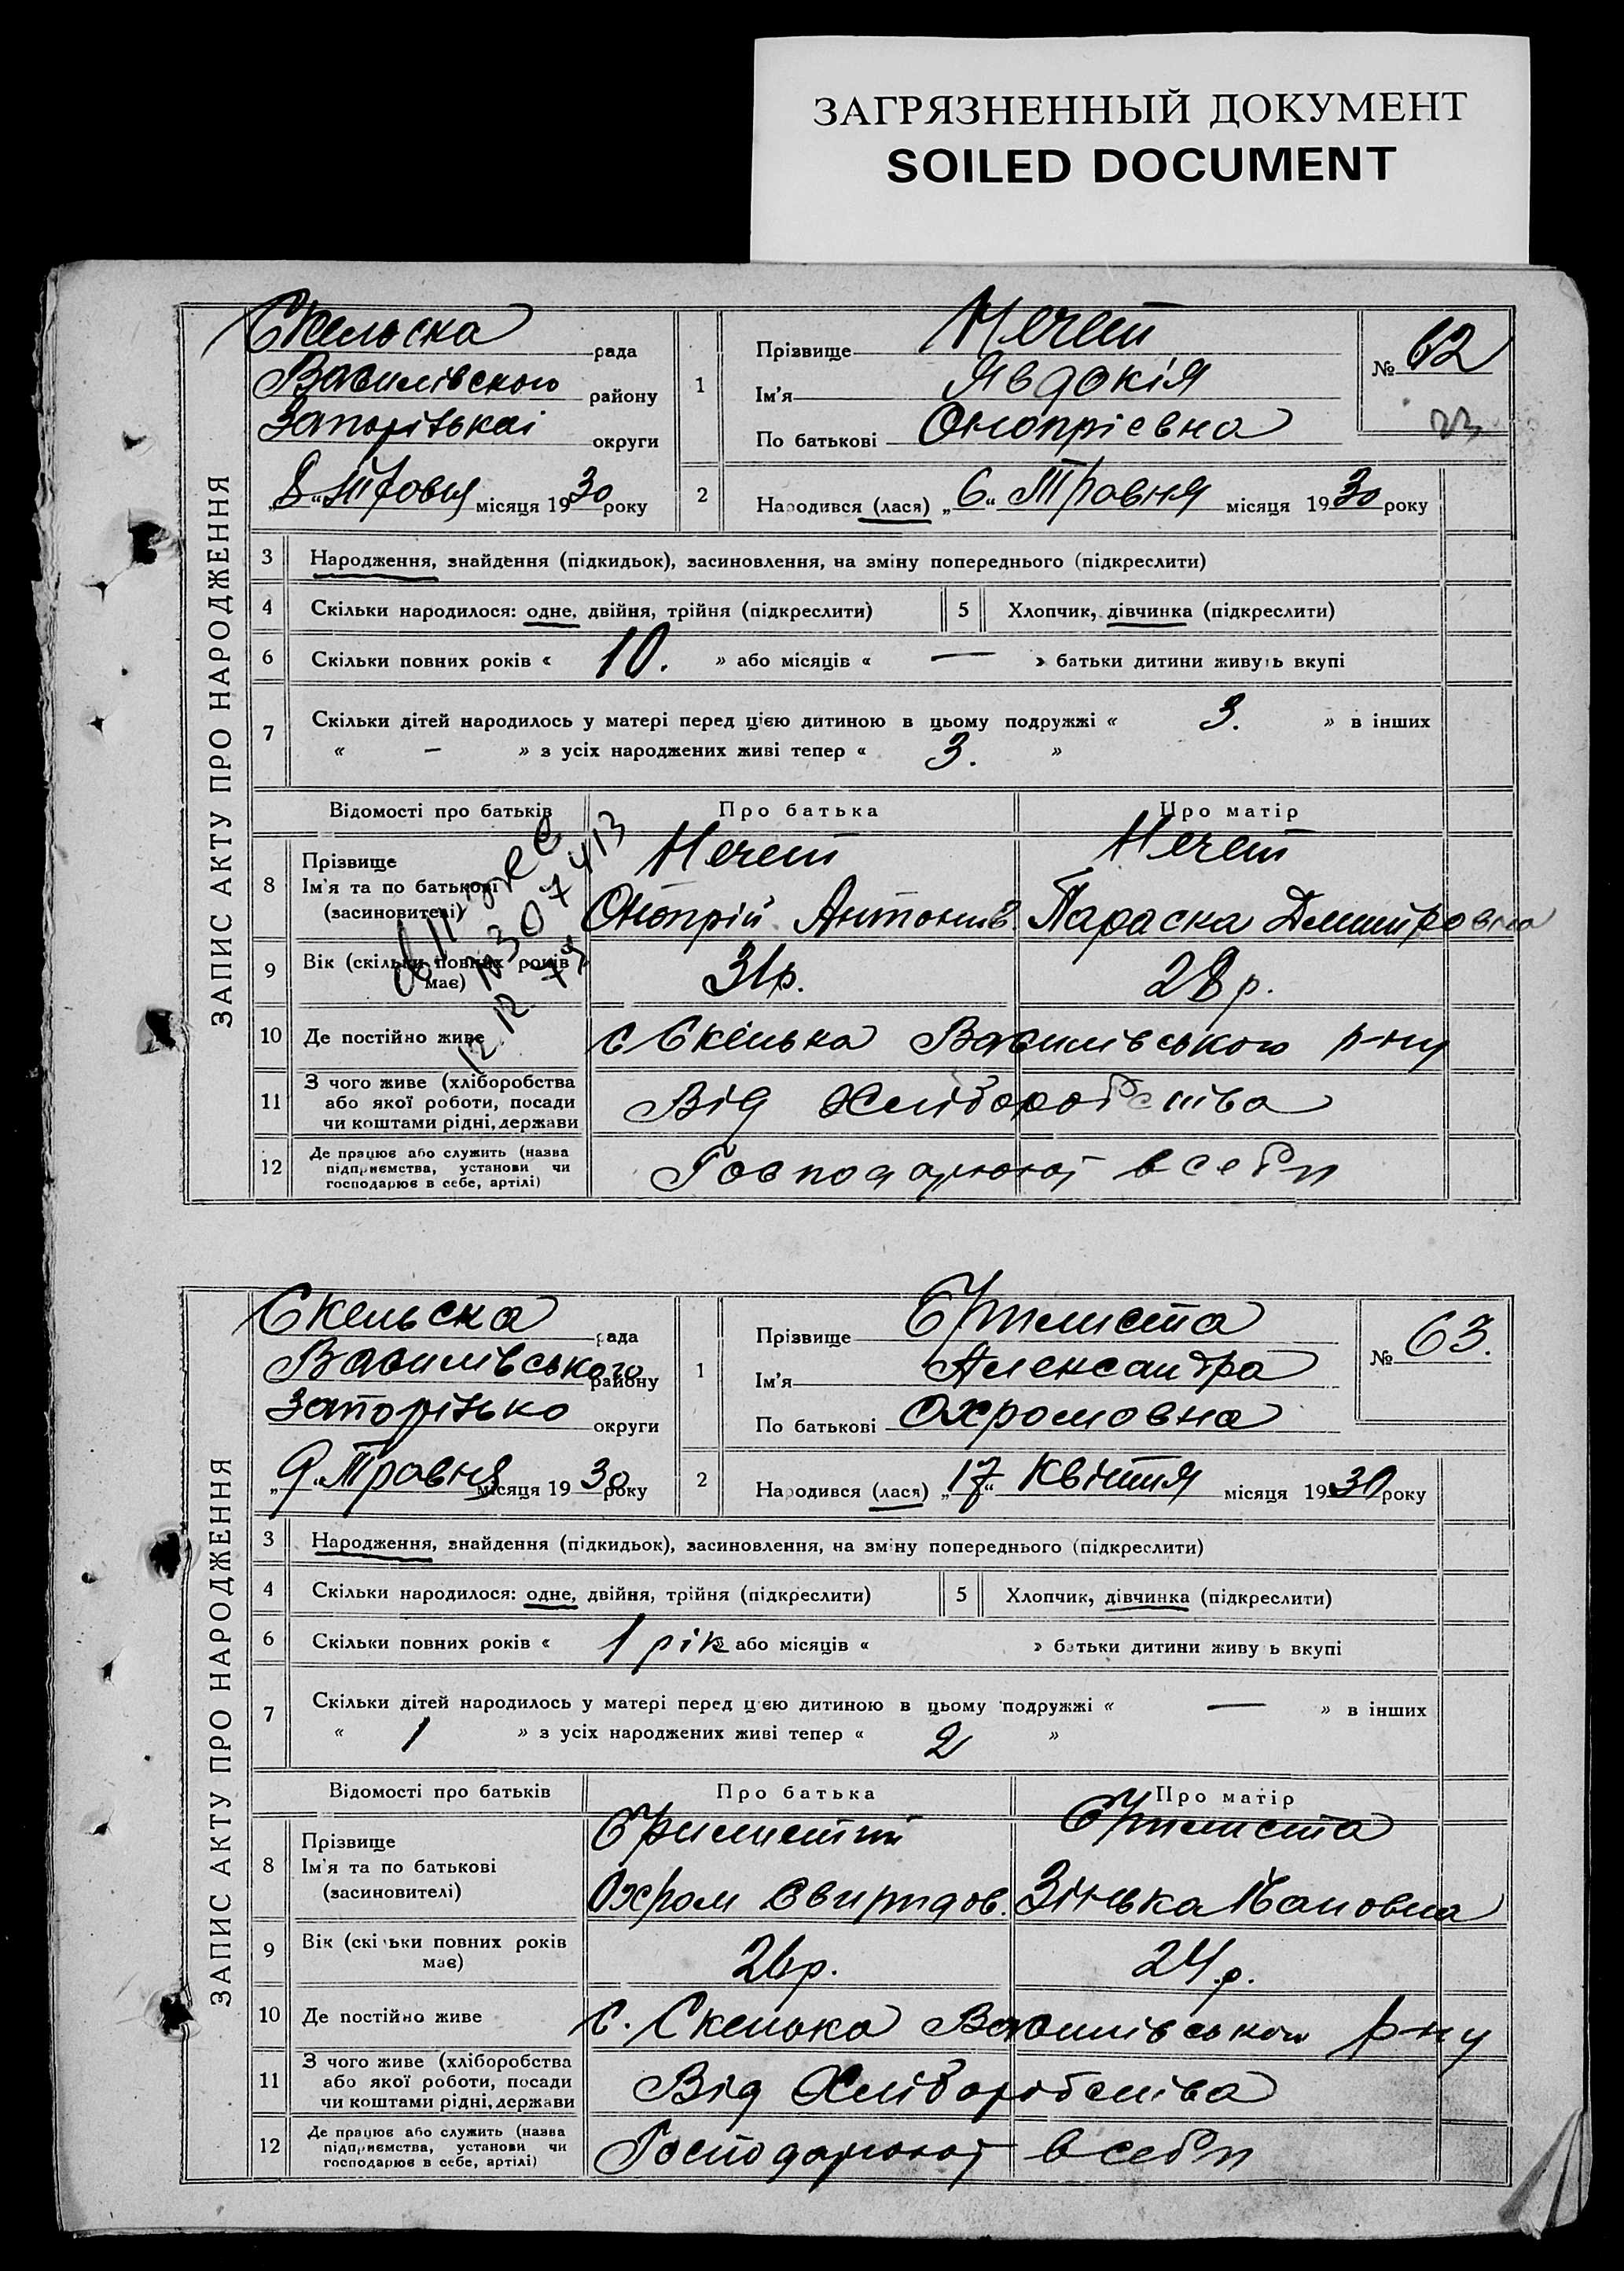 ЗАГРЯЗНЕННЫЙ ДОКУМЕНТ
SOILED DOCUMENT
ЗАПИС АКТУ ПРО НАРОДЖЕННЯ
Скельска рада
Василівского району
Запорізькоі округи
8 місяця 1930 року
1 Прізвище Нечет
Ім'я Явдокія
По батькові Онопрієвна
№ 62
23
2 Народився (лася) „6“ Травня місяця 1930 року
3 Народження, знайдення (підкидьок), засиновлення, на зміну попереднього (підкреслити)
4 Скільки народилося: одне, двійня, трійня (підкреслити) 5 Хлопчик, дівчинка (підкреслити)
6 Скільки повних років « 10. » або місяців « — » батьки дитини живуть вкупі
7 Скільки дітей народилось у матері перед цією дитиною в цьому подружжі « 3. » в інших
« — » з усіх народжених живі тепер « 3. »
Відомості про батьків Про батька Про матір
8 Прізвище Нечет Нечет
Ім'я та по батькові
(засиновителі) Онопрій Антонів. Параска Дмитровна
9 Вік (скільки повних років
має) 31р. 28 р.
10 Де постійно живе с Скелька Василівського р-ну
11 З чого живе (хліборобства
або якої роботи, посади
чи коштами рідні, держави Від Хліборобства
12 Де працює або служить (назва
підприємства, установи чи
господарює в себе, артілі) Господарюют в себе
ЗАПИС АКТУ ПРО НАРОДЖЕННЯ
Скельска рада
Василівського району
Запорізько округи
„9“ Травня місяця 1930 року
1 Прізвище
Ім'я Александра
По батькові Охромовна
№ 63.
2 Народився (лася) „17“ Квітня місяця 1930 року
3 Народження, знайдення (підкидьок), засиновлення, на зміну попереднього (підкреслити)
4 Скільки народилося: одне, двійня, трійня (підкреслити) 5 Хлопчик, дівчинка (підкреслити)
6 Скільки повних років « 1 рік » або місяців « » батьки дитини живуть вкупі
7 Скільки дітей народилось у матері перед цією дитиною в цьому подружжі « — » в інших
« 1 » з усіх народжених живі тепер « 2 »
Відомості про батьків Про батька Про матір
8 Прізвище
Ім'я та по батькові
(засиновителі) Охром Свиридов. Зінька Івановна
9 Вік (скільки повних років
має) 26р. 24 р.
10 Де постійно живе с. Скелька Василівського р-ну
11 З чого живе (хліборобства
або якої роботи, посади
чи коштами рідні, держави Від Хліборобства
12 Де працює або служить (назва
підприємства, установи чи
господарює в себе, артілі) Господарюют в себе